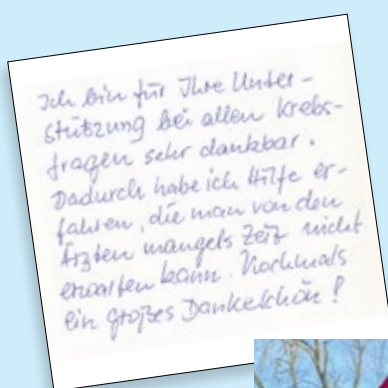 Ich bin für Ihre Unter-
stützung bei allen Krebs-
fragen sehr dankbar.
Dadurch habe ich Hilfe er-
fahren, die man von den
Ärzten mangels Zeit nicht
erwarten kann. Nochmals
ein großes Dankeschön!